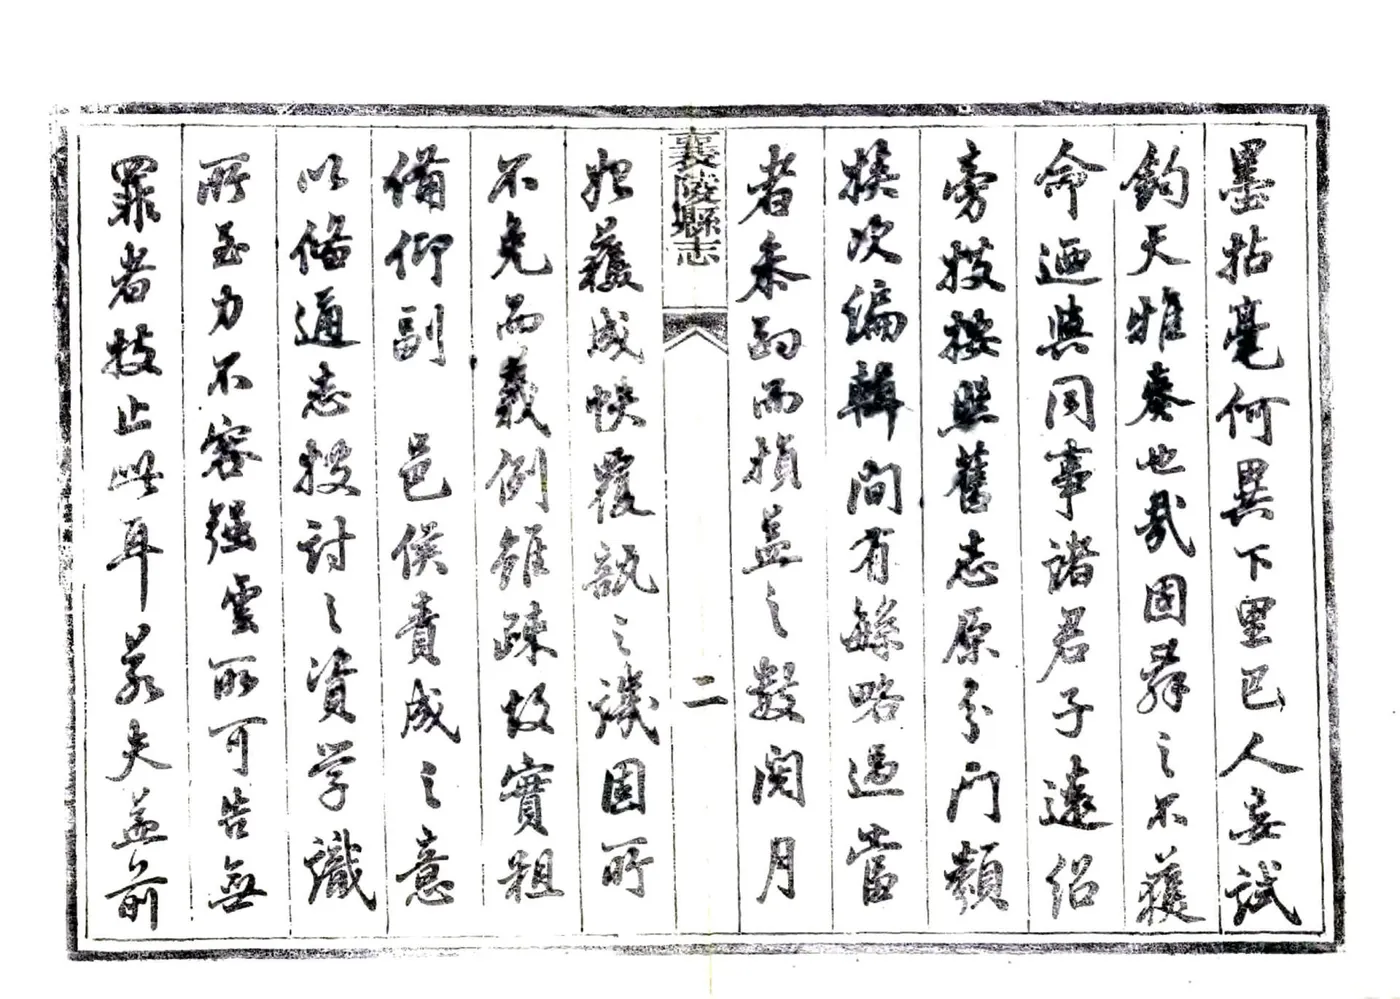 墨拈毫何異下里巴人妄試
鈞天雅奏也哉固辭之不獲
命迺與同事諸君子遠紹
旁技按照舊志原分門類
挨次編輯間有繇略過當
者柰酌而損益之數閱月
襄陵縣志
二
始獲成帙覆瓿之譏固所
不免而義例雖疎故實粗
備仰副 邑侯責成之意
以備通志採討之資学識
所至力不容强雲所可告無
罪者技止此耳若夫益前